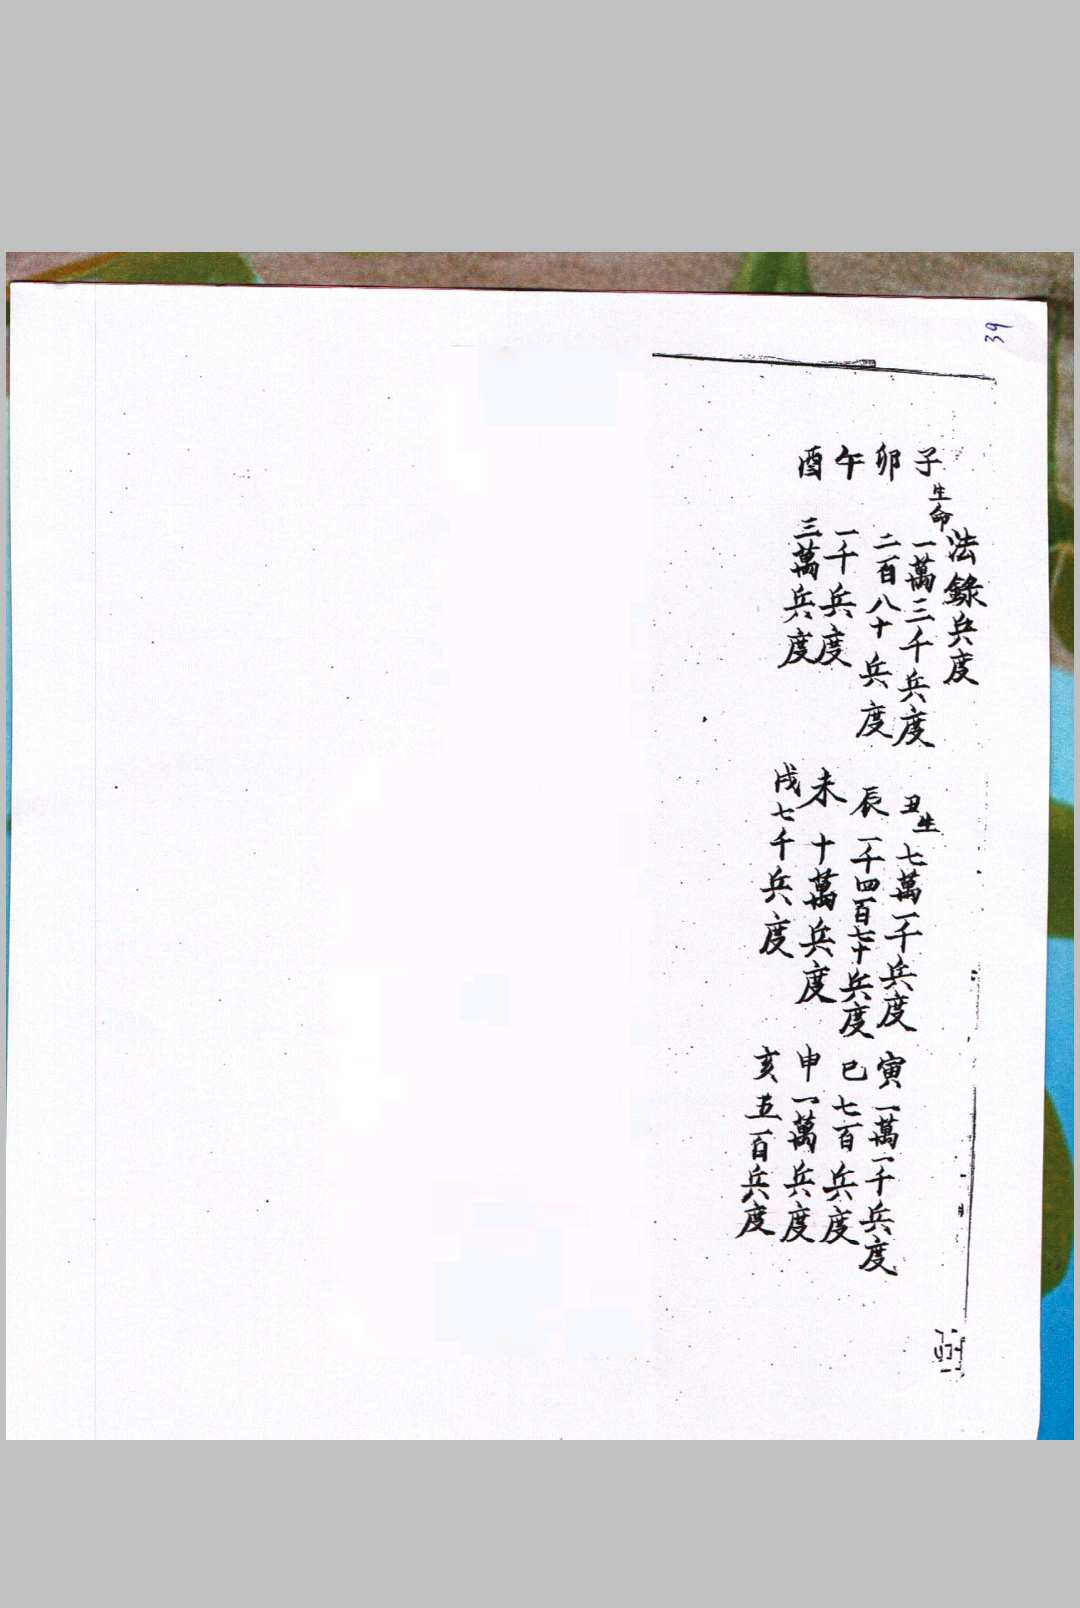 39
法錄兵度
子生命一萬三千兵度 丑生七萬一千兵度 寅一萬一千兵度
卯二百八十兵度 辰一千四百七十兵度 巳七百兵度
午一千兵度 未十萬兵度 申一萬兵度
酉三萬兵度 戌七千兵度 亥五百兵度